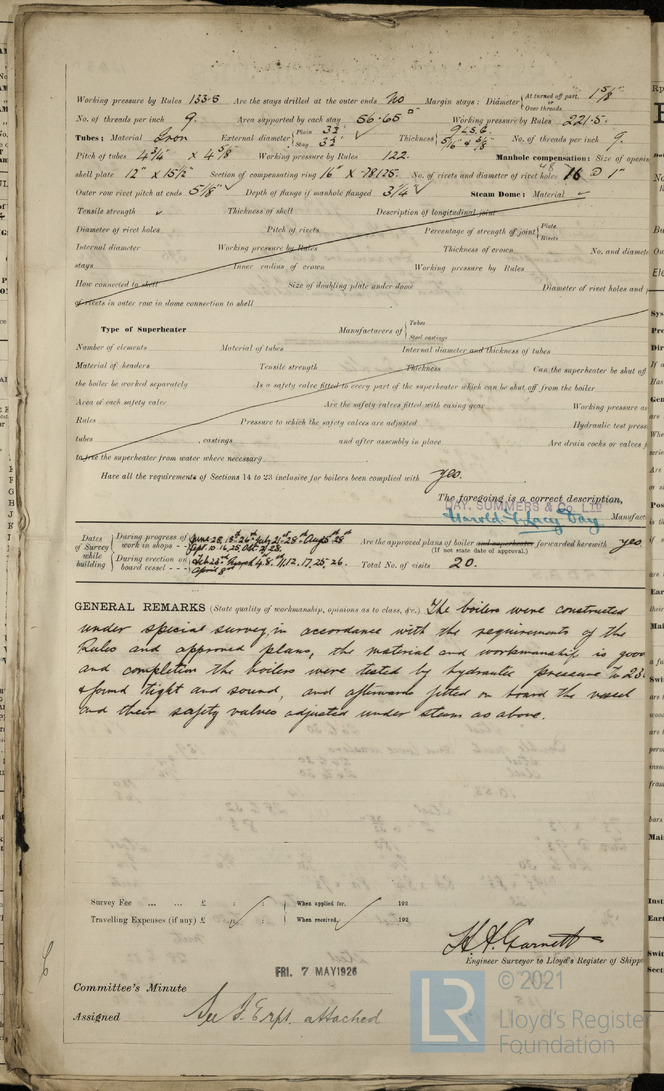 Working pressure by Rules 133.5 Are the stays drilled at the outer ends No Margin stays: Diameter { At turned off part, 1 5/8" or Over threads
No. of threads per inch 9. Area supported by each stay 56.65 □" Working pressure by Rules 221.5.
Tubes: Material Iron External diameter { Plain 3 1/2 Stay 3 1/2 Thickness { 9 L.S.G. 5/16" & 3/8 No. of threads per inch 9.
Pitch of tubes 4 3/4" x 4 5/8" Working pressure by Rules 122. Manhole compensation: Size of openin
shell plate 12" x 15 1/2" Section of compensating ring 16" x .78125. No. of rivets and diameter of rivet holes 48 @ 1"
Outer row rivet pitch at ends 5 1/8" Depth of flange if manhole flanged 3 1/4" Steam Dome: Material
Tensile strength Thickness of shell Description of longitudinal joint
Diameter of rivet holes Pitch of rivets Percentage of strength of joint { Plate Rivets
Internal diameter Working pressure by Rules Thickness of crown No. and diamete
stays Inner radius of crown Working pressure by Rules
How connected to shell Size of doubling plate under dome Diameter of rivet holes and p
of rivets in outer row in dome connection to shell
Type of Superheater Manufacturers of { Tubes Steel castings
Number of elements Material of tubes Internal diameter and thickness of tubes
Material of headers Tensile strength Thickness Can the superheater be shut off
the boiler be worked separately Is a safety valve fitted to every part of the superheater which can be shut off from the boiler
Area of each safety valve Are the safety valves fitted with easing gear Working pressure as
Rules Pressure to which the safety valves are adjusted Hydraulic test press
tubes , castings and after assembly in place Are drain cocks or valves f
to free the superheater from water where necessary
Have all the requirements of Sections 14 to 23 inclusive for boilers been complied with yes.
The foregoing is a correct description,
DAY, SUMMERS & Co. LTD
Manufact
Dates of Survey while building { During progress of work in shops - - June 28, 18th 26th July 21st 28th Aug 25 28th Sept. 2. 16, 25, Oct. 2, 28. Are the approved plans of boiler and superheater forwarded herewith yes
(If not state date of approval.)
During erection on board vessel - - - Feb 23rd March 4. 8. 11. 12. 17. 25. 26. April 8th Total No. of visits 20.
GENERAL REMARKS (State quality of workmanship, opinions as to class, &c.) The boilers were constructed
under special survey, in accordance with the requirements of the
Rules and approved plans, the material and workmanship is good
and completion the boilers were tested by hydraulic pressure to 23
& found tight and sound, and afterwards fitted on board the vessel
and their safety valves adjusted under steam as above.
Survey Fee ... ... £ : : When applied for, 192
Travelling Expenses (if any) £ : : When received, 192
H. A. Garnett
Engineer Surveyor to Lloyd's Register of Shipp
FRI. 7 MAY 1926
Committee's Minute
Assigned See F.E. rpt. attached
LR
© 2021
Lloyd's Register
Foundation